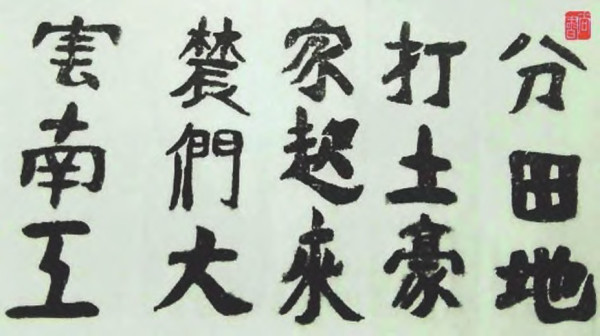 雲南工
辳們大
家起來
打土豪
分田地